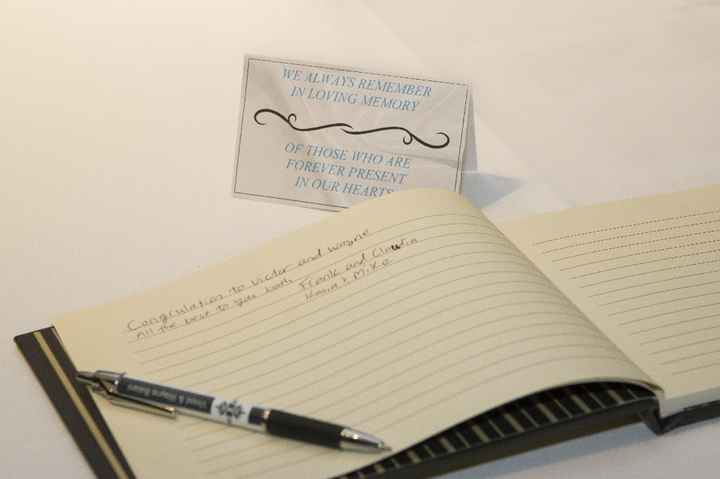 WE ALWAYS REMEMBER
IN LOVING MEMORY
OF THOSE WHO ARE
FOREVER PRESENT
IN OUR HEARTS
Congrulation to Victor and Wayne
All the best to you both
Frank and
& Mike
& Wayne